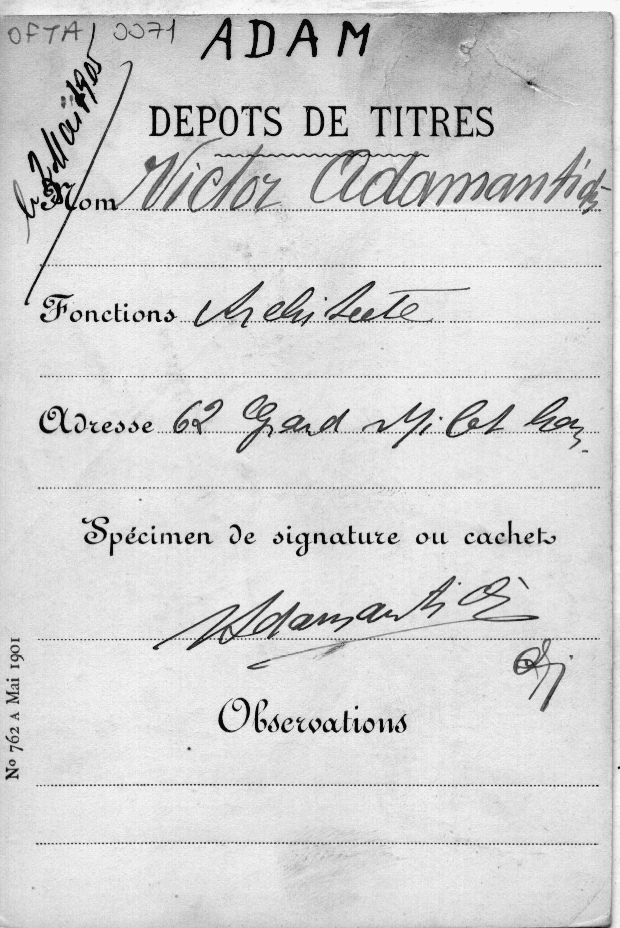 OFTA 0071
ADAM
le 2 Mai 1905
DEPOTS DE TITRES
Nom Victor Adamantidis
Fonctions Architecte
Adresse 62 Grand Millet han
Spécimen de signature ou cachet
VAdamantidi
Observations
Nº 762 A Mai 1901